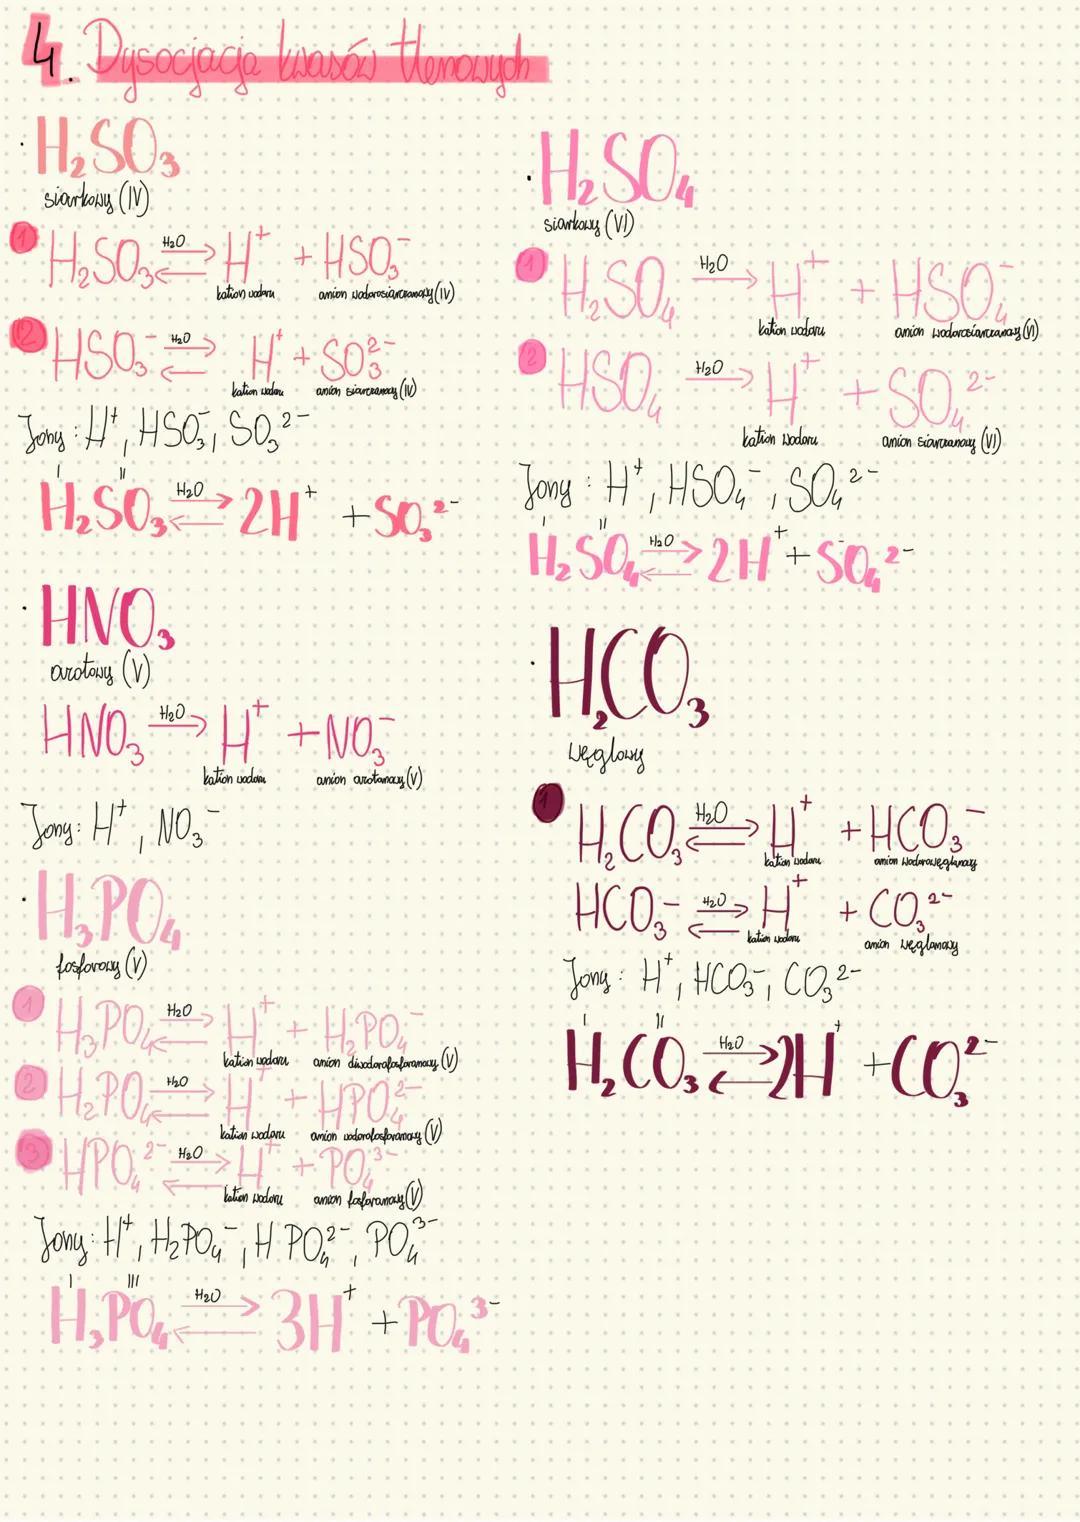 4. Dysocjacja kwasów tlenowych
· H₂SO₃
siarkowy (IV)
1 H₂SO₃ ⇄ H₂O H⁺ + HSO₃⁻
kation wodoru anion wodorosiarczanowy (IV)
2 HSO₃⁻ ⇄ H₂O H⁺ + SO₃²⁻
kation wodoru anion siarczanowy (IV)
Jony: H⁺, HSO₃⁻, SO₃²⁻
I II
H₂SO₃ ⇄ H₂O 2H⁺ + SO₃²⁻
· HNO₃
azotowy (V)
HNO₃ → H₂O H⁺ + NO₃⁻
kation wodoru anion azotanowy (V)
Jony: H⁺, NO₃⁻
· H₃PO₄
fosforowy (V)
1 H₃PO₄ ⇄ H₂O H⁺ + H₂PO₄⁻
kation wodoru anion diwodorofosforanowy (V)
2 H₂PO₄⁻ ⇄ H₂O H⁺ + HPO₄²⁻
kation wodoru anion wodorofosforanowy (V)
3 HPO₄²⁻ ⇄ H₂O H⁺ + PO₄³⁻
kation wodoru anion fosforanowy (V)
Jony: H⁺, H₂PO₄⁻, HPO₄²⁻, PO₄³⁻
I III
H₃PO₄ ⇄ H₂O 3H⁺ + PO₄³⁻
· H₂SO₄
siarkowy (VI)
1 H₂SO₄ → H₂O H⁺ + HSO₄⁻
kation wodoru anion wodorosiarczanowy (VI)
2 HSO₄ → H₂O H⁺ + SO₄²⁻
kation wodoru anion siarczanowy (VI)
Jony: H⁺, HSO₄⁻, SO₄²⁻
I II
H₂SO₄ ⇄ H₂O 2H⁺ + SO₄²⁻
· H₂CO₃
węglowy
1 H₂CO₃ ⇄ H₂O H⁺ + HCO₃⁻
kation wodoru anion wodorowęglanowy
HCO₃⁻ ⇄ H₂O H⁺ + CO₃²⁻
kation wodoru anion węglanowy
Jony: H⁺, HCO₃⁻, CO₃²⁻
I II
H₂CO₃ ⇄ H₂O 2H⁺ + CO₃²⁻